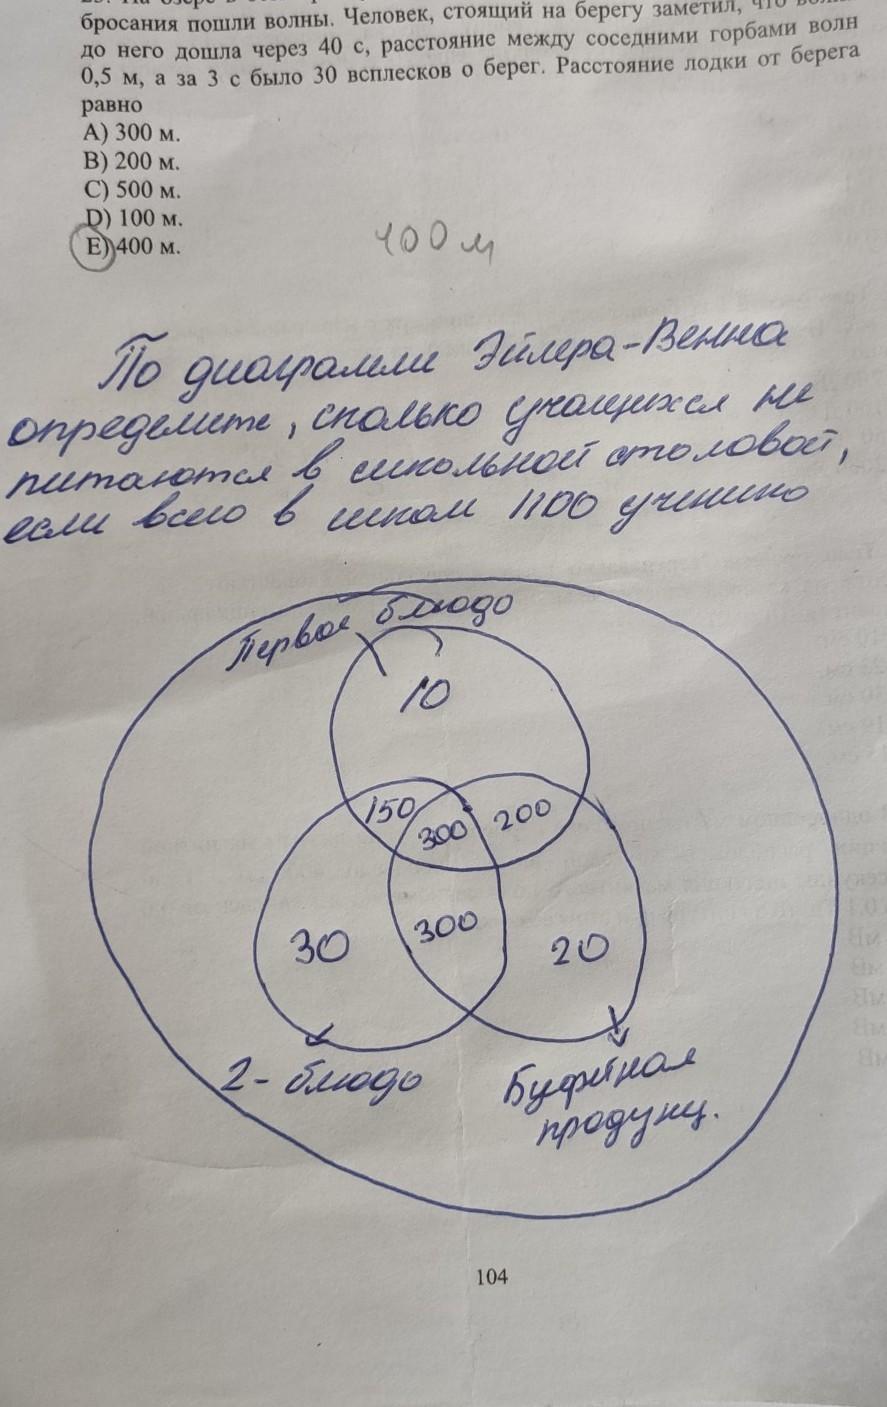 бросания пошли волны. Человек, стоящий на берегу заметил, что
до него дошла через 40 с, расстояние между соседними горбами волн
0,5 м, а за 3 с было 30 всплесков о берег. Расстояние лодки от берега
равно
A) 300 м.
B) 200 м.
C) 500 м.
D) 100 м.
E) 400 м.
400 м
По диаграмми Эйлера-Венна
определите, сколько учащихся не
питаются в школьной столовой,
если всего в школ 1100 ученико
Первое блюдо
10
150
300
200
30
300
20
2- блюдо
Буфетная
продукц.
104